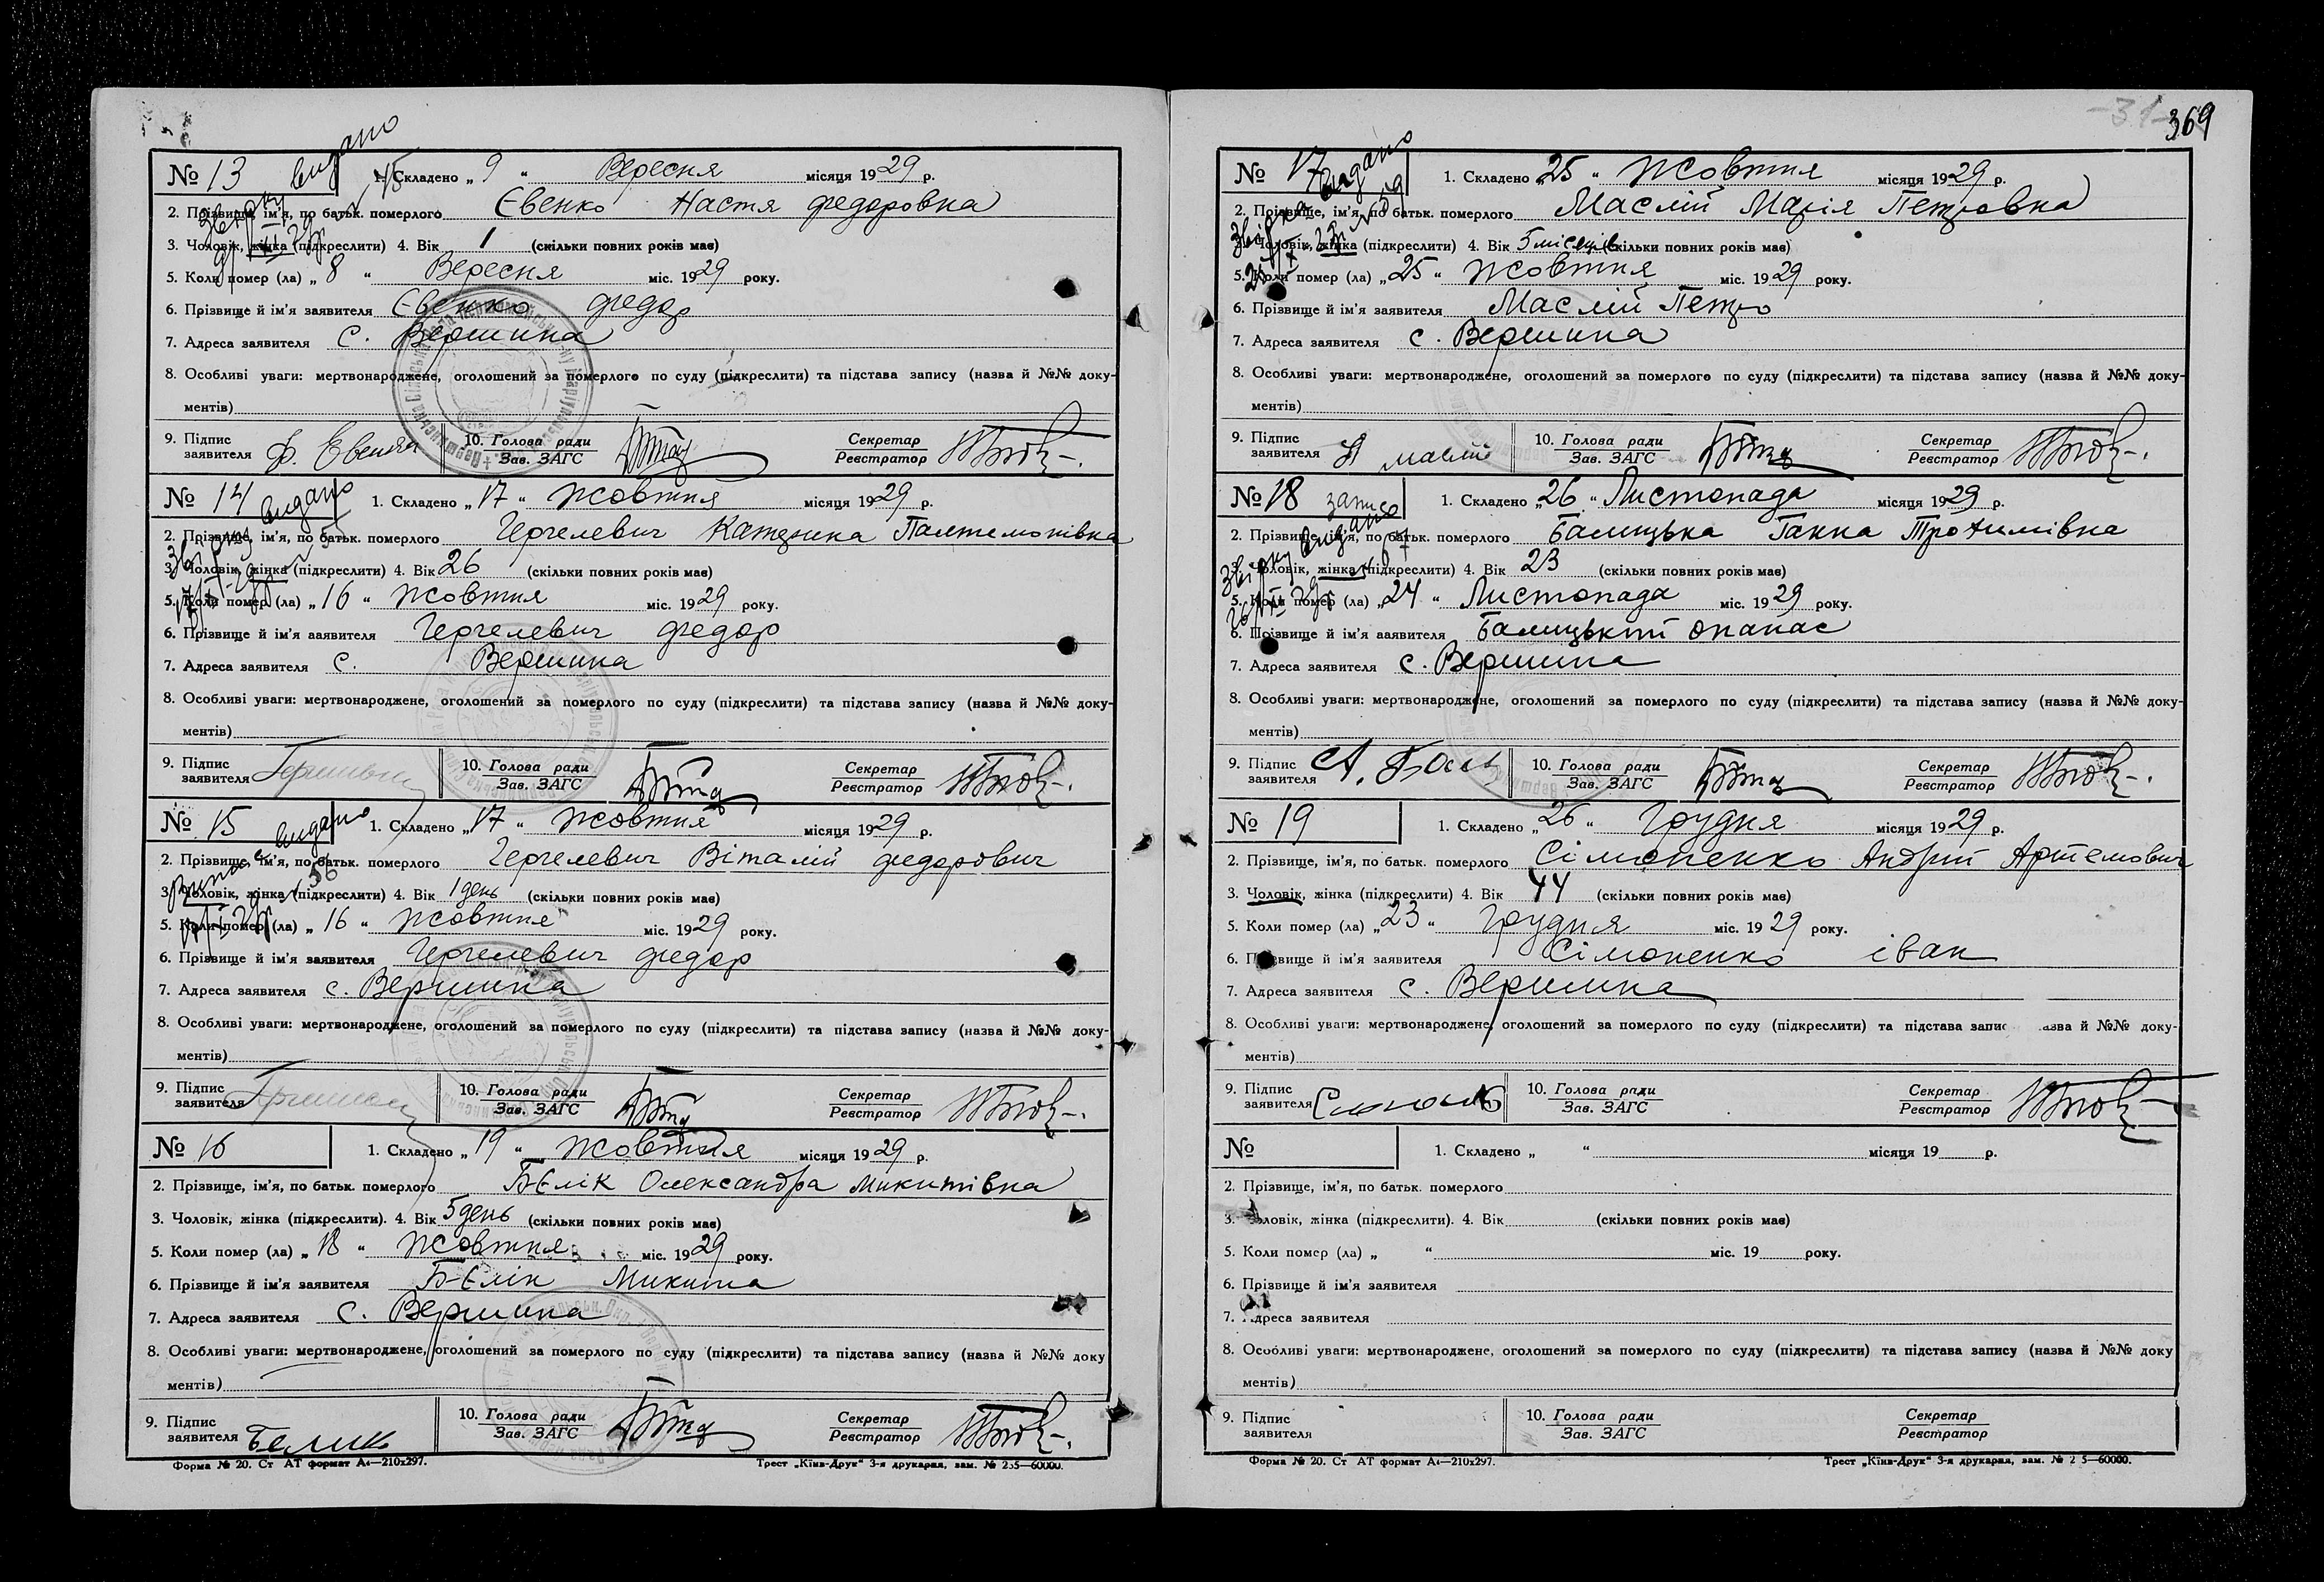 -31-
369
№ 13 видано 1. Складено „ 9 “ Вересня місяця 1929 р.
2. Прізвище, ім'я, по батьк. померлого Євенко Настя Федоровна
3. Чоловік, жінка (підкреслити) 4. Вік 1 (скільки повних років має)
5. Коли помер (ла) „ 8 “ Вересня міс. 1929 року.
6. Прізвище й ім'я заявителя Євенко Федор
7. Адреса заявителя с. Вершина
8. Особливі уваги: мертвонароджене, оголошений за померлого по суду (підкреслити) та підстава запису (назва й №№ доку-
ментів)
9. Підпис заявителя Ф. Евенко 10. Голова ради Зав. ЗАГС Секретар Реєстратор
№ 14 видано 1. Складено „ 17 “ Жовтня місяця 1929 р.
2. Прізвище, ім'я, по батьк. померлого Гергелевич Катерина Палтемонівна
3. Чоловік, жінка (підкреслити) 4. Вік 26 (скільки повних років має)
5. Коли помер (ла) „ 16 “ Жовтня міс. 1929 року.
6. Прізвище й ім'я заявителя Гергелевич Федор
7. Адреса заявителя с. Вершина
8. Особливі уваги: мертвонароджене, оголошений за померлого по суду (підкреслити) та підстава запису (назва й №№ доку-
ментів)
9. Підпис заявителя 10. Голова ради Зав. ЗАГС Секретар Реєстратор
№ 15 видано 1. Складено „ 17 “ Жовтня місяця 1929 р.
2. Прізвище, ім'я, по батьк. померлого Гергелевич Віталій Федорович
3. Чоловік, жінка (підкреслити) 4. Вік 1 день (скільки повних років має)
5. Коли помер (ла) „ 16 “ Жовтня міс. 1929 року.
6. Прізвище й ім'я заявителя Гергелевич Федор
7. Адреса заявителя с. Вершина
8. Особливі уваги: мертвонароджене, оголошений за померлого по суду (підкреслити) та підстава запису (назва й №№ доку-
ментів)
9. Підпис заявителя 10. Голова ради Зав. ЗАГС Секретар Реєстратор
№ 16 1. Складено „ 19 “ Жовтня місяця 1929 р.
2. Прізвище, ім'я, по батьк. померлого Б-Єлік Олександра Микитівна
3. Чоловік, жінка (підкреслити). 4. Вік 5 день (скільки повних років має)
5. Коли помер (ла) „ 18 “ Жовтня міс. 1929 року.
6. Прізвище й ім'я заявителя Б-Єлік Микита
7. Адреса заявителя с. Вершина
8. Особливі уваги: мертвонароджене, оголошений за померлого по суду (підкреслити) та підстава запису (назва й №№ доку
ментів)
9. Підпис заявителя Белик 10. Голова ради Зав. ЗАГС Секретар Реєстратор
Форма № 20. Ст АТ формат А4—210x297. Трест „Київ-Друк“ 3-я друкарня, зам. № 235—60000.
№ 17 видано 1. Складено „ 25 “ Жовтня місяця 1929 р.
2. Прізвище, ім'я, по батьк. померлого Маслій Марія Петровна
3. Чоловік, жінка (підкреслити) 4. Вік 5 місяців (скільки повних років має)
5. Коли помер (ла) „ 25 “ Жовтня міс. 1929 року.
6. Прізвище й ім'я заявителя Маслій Петро
7. Адреса заявителя с. Вершина
8. Особливі уваги: мертвонароджене, оголошений за померлого по суду (підкреслити) та підстава запису (назва й №№ доку-
ментів)
9. Підпис заявителя маслій 10. Голова ради Зав. ЗАГС Секретар Реєстратор
№ 18 видано 1. Складено „ 26 “ Листопада місяця 1929 р.
2. Прізвище, ім'я, по батьк. померлого Балицька Ганна Трохимівна
3. Чоловік, жінка (підкреслити) 4. Вік 23 (скільки повних років має)
5. Коли помер (ла) „ 24 “ Листопада міс. 1929 року.
6. Прізвище й ім'я заявителя Балицький Опанас
7. Адреса заявителя с. Вершина
8. Особливі уваги: мертвонароджене, оголошений за померлого по суду (підкреслити) та підстава запису (назва й №№ доку-
ментів)
9. Підпис заявителя 10. Голова ради Зав. ЗАГС Секретар Реєстратор
№ 19 1. Складено „ 26 “ Грудня місяця 1929 р.
2. Прізвище, ім'я, по батьк. померлого Сімоненко Андрій Артемович
3. Чоловік, жінка (підкреслити) 4. Вік 44 (скільки повних років має)
5. Коли помер (ла) „ 23 “ Грудня міс. 1929 року.
6. Прізвище й ім'я заявителя Сімоненко іван
7. Адреса заявителя с. Вершина
8. Особливі уваги: мертвонароджене, оголошений за померлого по суду (підкреслити) та підстава запис азва й №№ доку-
ментів)
9. Підпис заявителя 10. Голова ради Зав. ЗАГС Секретар Реєстратор
№ 1. Складено „ “ місяця 19 р.
2. Прізвище, ім'я, по батьк. померлого
3. Чоловік, жінка (підкреслити). 4. Вік (скільки повних років має)
5. Коли помер (ла) „ “ міс. 19 року.
6. Прізвище й ім'я заявителя
7. Адреса заявителя
8. Особливі уваги: мертвонароджене, оголошений за померлого по суду (підкреслити) та підстава запису (назва й №№ доку
ментів)
9. Підпис заявителя 10. Голова ради Зав. ЗАГС Секретар Реєстратор
Форма № 20. Ст АТ формат А4—210x297. Трест „Київ-Друк“ 3-я друкарня, зам. № 2 5—60000.